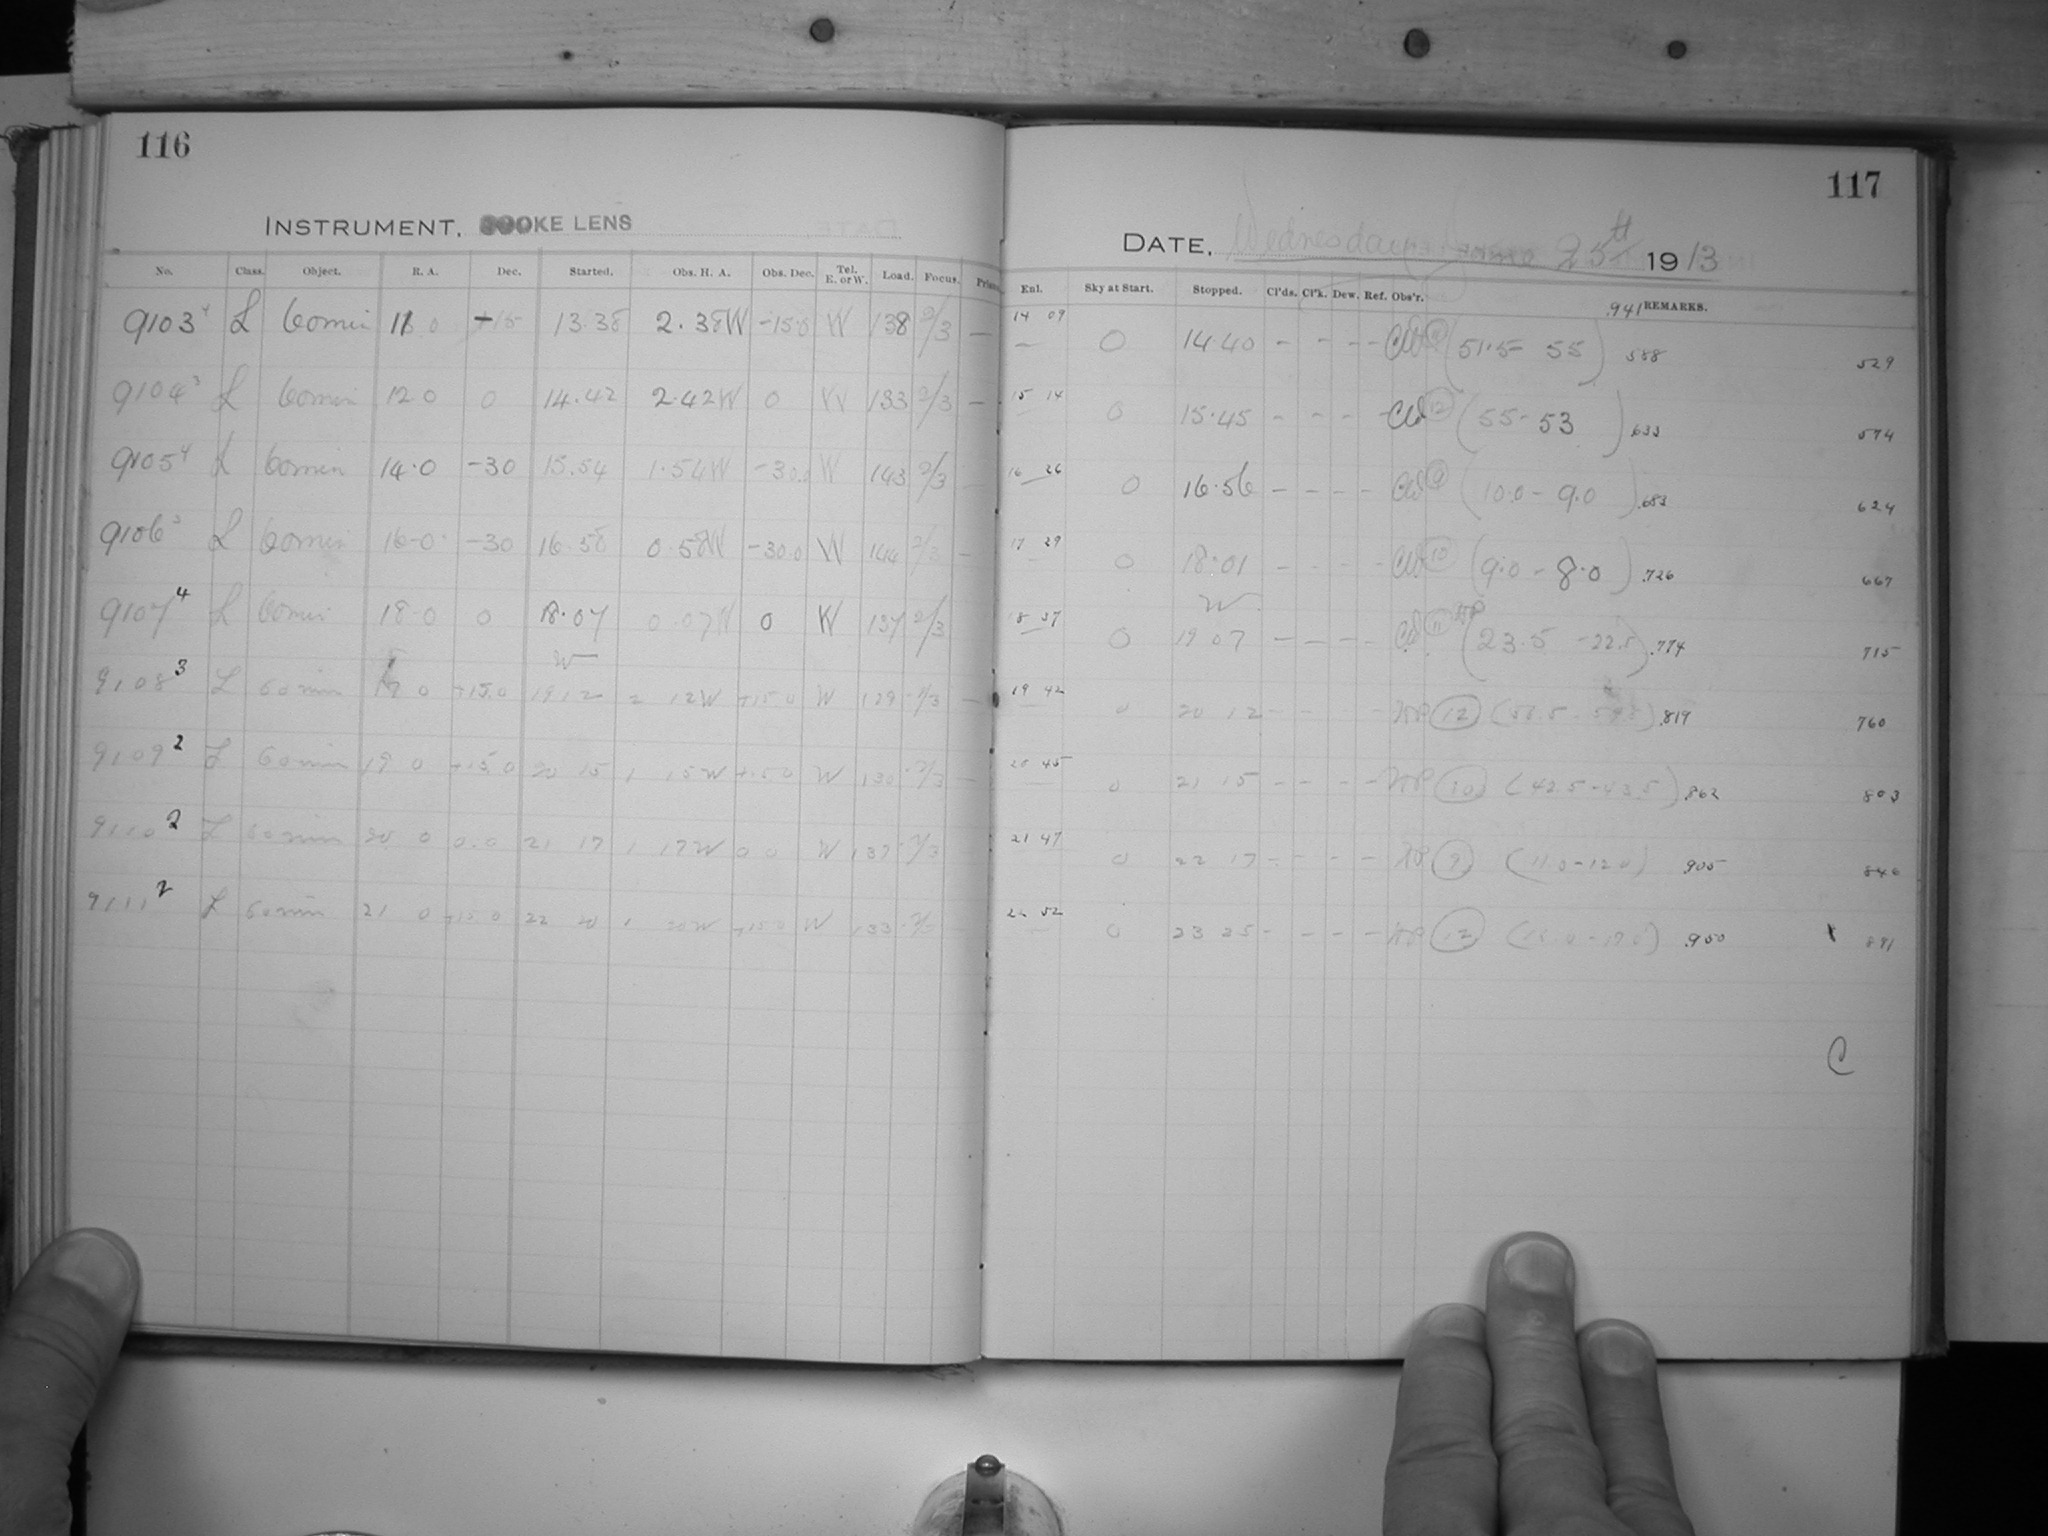 116
INSTRUMENT, COOKE LENS
No. Class. Object. R. A. Dec. Started. Obs. H. A. Obs. Dec. Tel. E. or W. Load. Focus.
9103 4 L 60 min 11 0 -15 13.38 2.38W -15.0 W 138 2/3 —
9104 3 L 60 min 12 0 0 14.42 2.42W 0 W 133 2/3 —
9105 4 L 60 min 14.0 -30 15.54 1.54W -30.0 W 143 2/3
9106 3 L 60 min 16.0 -30 16.58 0.58W -30.0 W 144 2/3 —
9107 4 L 60 min 18.0 0 18.07 0.07W 0 W 137 2/3
9108 3 L 60 min 17 0 +15.0 19 12 2 12W +15 0 W 129 2/3 —
9109 2 L 60 min 19 0 +15.0 20 15 1 15W +15 0 W 130 2/3 —
9110 2 L 60 min 20 0 0.0 21 17 1 17W 0 0 W 137 2/3
9111 2 L 60 min 21 0 +15 0 22 20 1 20W +15 0 W 133
117
DATE, Wednesday 25th 1913
Enl. Sky at Start. Stopped. Cl'ds. Cl'k. Dew. Ref. Obs'r. .941 REMARKS.
14 09 — 0 14.40 - - - - CW (51.5 - 55) 588 529
15 14 — 0 15.45 - - - - CW 12 (55 - 53) .633 574
16 26 — 0 16.56 - - - - CW 9 (10.0 - 9.0) .683 624
17 29 — 0 18.01 - - - - CW 10 (9.0 - 8.0) .726 667
18 37 — 0 19 07 - - - - CW 11 (23.5 - 22.5) .774 715
19 42 — 0 20 12 - - - - 12 .819 760
20 45 — 0 21 15 - - - - 10 (42.5 - 43.5) .862 803
21 47 0 22 17 - - - - 9 (11.0 - 12 0) .905 846
22 52 — 0 23 25 - - - - 12 .950 891
C